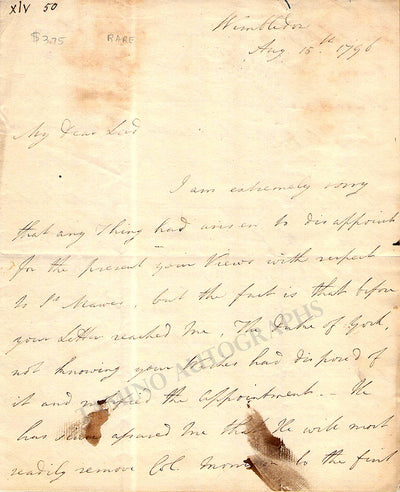 xlv 50
$375 RARE
Wimbledon
Aug. 15th 1796
My Dear Lord
I am extremely sorry
that any Thing had arisen to disappoint
for the present your Views with respect
to St Mawes, but the fact is that before
your Letter reached Me, The Duke of York,
not knowing your Wishes had disposed of
it and notified the appointment. He
has since assured Me that He will most
readily remove Col. to the first
TAMINO AUTOGRAPHS